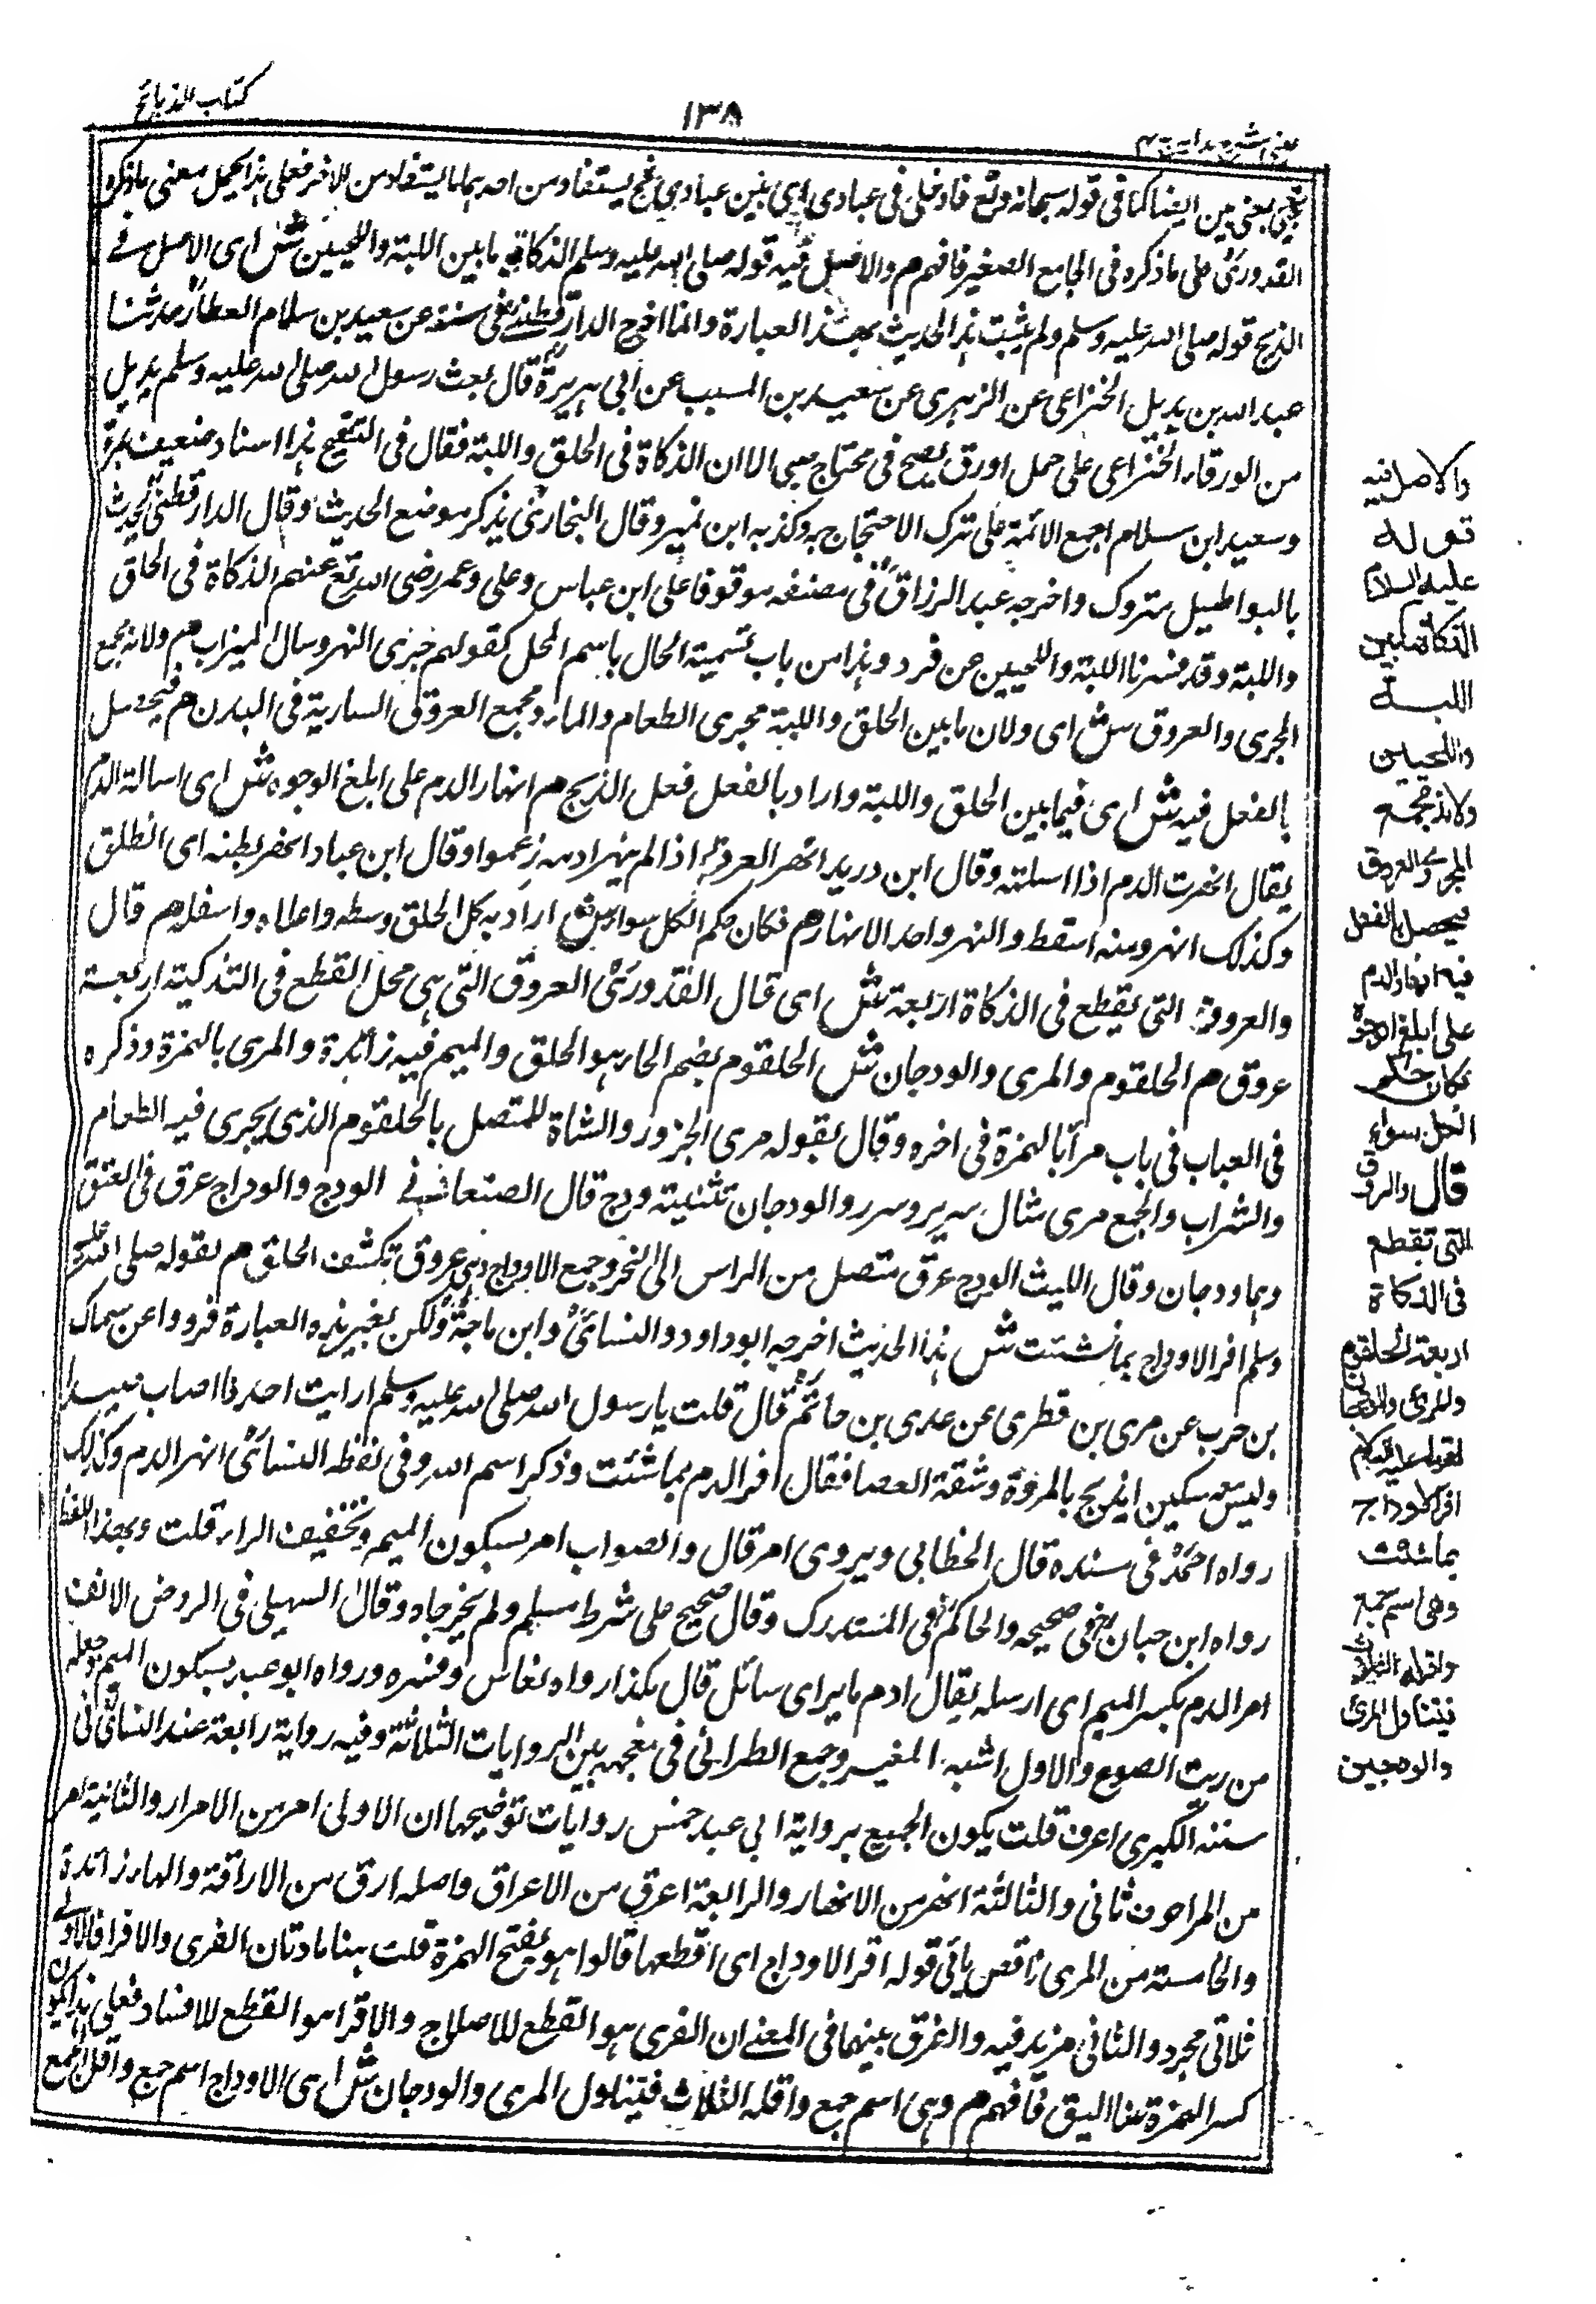 كتاب الذبائح
١٣٨
عينى شرح هدايه ج ٤
بمعنى بين ايضا كما فى قوله سبحانه وتع فادخلى فى عبادى اى بين عبادى يستفاد من احدهما ما يستفاد من الاخر فعلى هذا يحمل معنى ما ذكره
القدورىؒ على ما ذكره فى الجامع الصغير فافهم م والاصل فيه قوله صلى الله عليه وسلم الذكاة ما بين اللبة واللحيين ش اى الاصل فے
الذبح قوله صلى الله عليه وسلم ولم يثبت هذا الحديث بهذه العبارة وانما اخرج الدارقطنى فى سننه عن سعيد بن سلام العطار حدثنا
عبد الله بن بديل الخزاعى عن الزهرى عن سعيد بن المسيب عن ابى هريرةؓ قال بعث رسول الله صلى الله عليه وسلم بديل
من الورقاء الخزاعى على جمل اورق يصيح فى الا ان الذكاة فى الحلق واللبة فقال فى التنقيح هذا اسناد ضعيف بمرة
وسعيد ابن سلام اجمع الائمة على ترك الاحتجاج به وكذبه ابن نمير وقال البخارىؒ يذكر موضع الحديث وقال الدارقطنىؒ يحدث
بالبواطيل متروك واخرجه عبد الرزاقؒ فى مصنفه موقوفا على ابن عباس وعلى وعمر رضى الله تع عنهم الذكاة فى الحلق
واللبة وقد فسرنا اللبة واللحيين عن قرد وهذا من باب تسمية الحال باسم المحل كقولهم جرى النهر وسال الميزاب م ولانه مجمع
المجرى والعروق ش اى ولان ما بين الحلق واللبة مجرى الطعام والماء ومجمع العروق السارية فى البدن م فيحصل
بالفعل فيه ش اى فيما بين الحلق واللبة واراد بالفعل فعل الذبح م انهار الدم على ابلغ الوجوه ش اى اسالة الدم
يقال انهرت الدم اذا اسلته وقال ابن دريد انهر العروق اذا لم ينهر ادمه زعموا وقال ابن عباد انهر بطنه اى انطلق
وكذلك انهر ومنه اسقط والنهر واحد الانهار م فكان حكم الكل سواء ش اراد به كل الحلق وسطه واعلاه واسفله م قال
والعروق التى يقطع فى الذكاة اربعة ش اى قال القدورىؒ العروق التى هى محل القطع فى التذكية اربعة
عروق م الحلقوم والمرى والودجان ش الحلقوم بضم الحاء هو الحلق والميم فيه زائدة والمرى بالهمزة وذكره
فى العباب فى باب مرأ بالهمزة فى اخره وقال بقوله مرى الجزور والشاة للمتصل بالحلقوم الذى يجرى فيه الطعام
والشراب والجمع مرى مثال سرير وسرر والودجان تثنية ودج قال الصنعانے فے الودج والوداج عرق فى العنق
وهما ودجان وقال الليث الودج عرق متصل من الراس الى النحر وجمع الاوداج وهى عروق تكشف الحلق م لقوله صلى الله عليه
وسلم افر الاوداج بما شئت ش هذا الحديث اخرجه ابو داود والنسائىؒ وابن ماجةؒ ولكن بغير هذه العبارة فرووا عن سماك
بن حرب عن مرى بن قطرى عن عدى بن حاتمؓ قال قلت يا رسول الله صلى الله عليه وسلم ارايت احدنا اصاب صيدا
وليس معه سكين ايذبح بالمروة وشقة العصا فقال افر الدم بما شئت وذكر اسم الله وفى لفظه النسائىؒ انهر الدم وكذلك
رواه احمدؒ فى مسنده قال الخطابى ويروى امر قال والصواب امر بسكون الميم وتخفيف الراء قلت وبهذا اللفظ
رواه ابن حبانؒ فى صحيحه والحاكمؒ فى المستدرك وقال صحيح على شرط مسلم ولم يخرجاه وقال السهيلى فى الروض الانف
امر الدم بكسر الميم اى ارسله يقال ادم مايراى سائل قال هكذا رواه نغاس وفسره ورواه ابو عبيد بسكون الميم وجعله
من ريت الضوع والاول اشبه المغير وجمع الطبرانى فى معجمه بين الروايات الثلاثة وفيه رواية رابعة عند النسائىؒ فى
سننه الكبرى اعرق قلت يكون الجميع برواية ابى عبد خمس روايات توضيحها ان الاولى امر من الامرار والثانية امر
من المراجوف ثانى والثالثة انهر من الانهار والرابعة اعرق من الاعراق واصله ارق من الاراقة والهاء زائدة
والخامسة من المرى ناقص يائى قوله افر الاوداج اى اقطعها قالوا هو بفتح الهمزة قلت هنا مادتان الفرى والافرا فالاولے
ثلاثى مجرد والثانى مزيد فيه والفرق بينهما فى المعنے ان الفرى هو القطع للاصلاح والافرا هو القطع للافساد فعلى هذا يكون
كسر الهمزة هنا اليق فافهم م وهى اسم جمع واقله الثلاث فيتناول المرى والودجان ش اى الاوداج اسم جمع واقل الجمع
والاصل فيه
قوله
عليه السلام
الذكاة ما بين
اللبة
واللحيين
ولانه مجمع
المجرى والعروق
فيحصل بالفعل
فيه انهار الدم
على ابلغ الوجوه
فكان حكم
الكل سواء
قال والعروق
التى تقطع
فى الذكاة
اربعة الحلقوم
والمرئ والودجان
لقوله عليه السلام
افر الاوداج
بما شئت
وهى اسم جمع
واقله الثلاث
فيتناول المرئ
والودجين